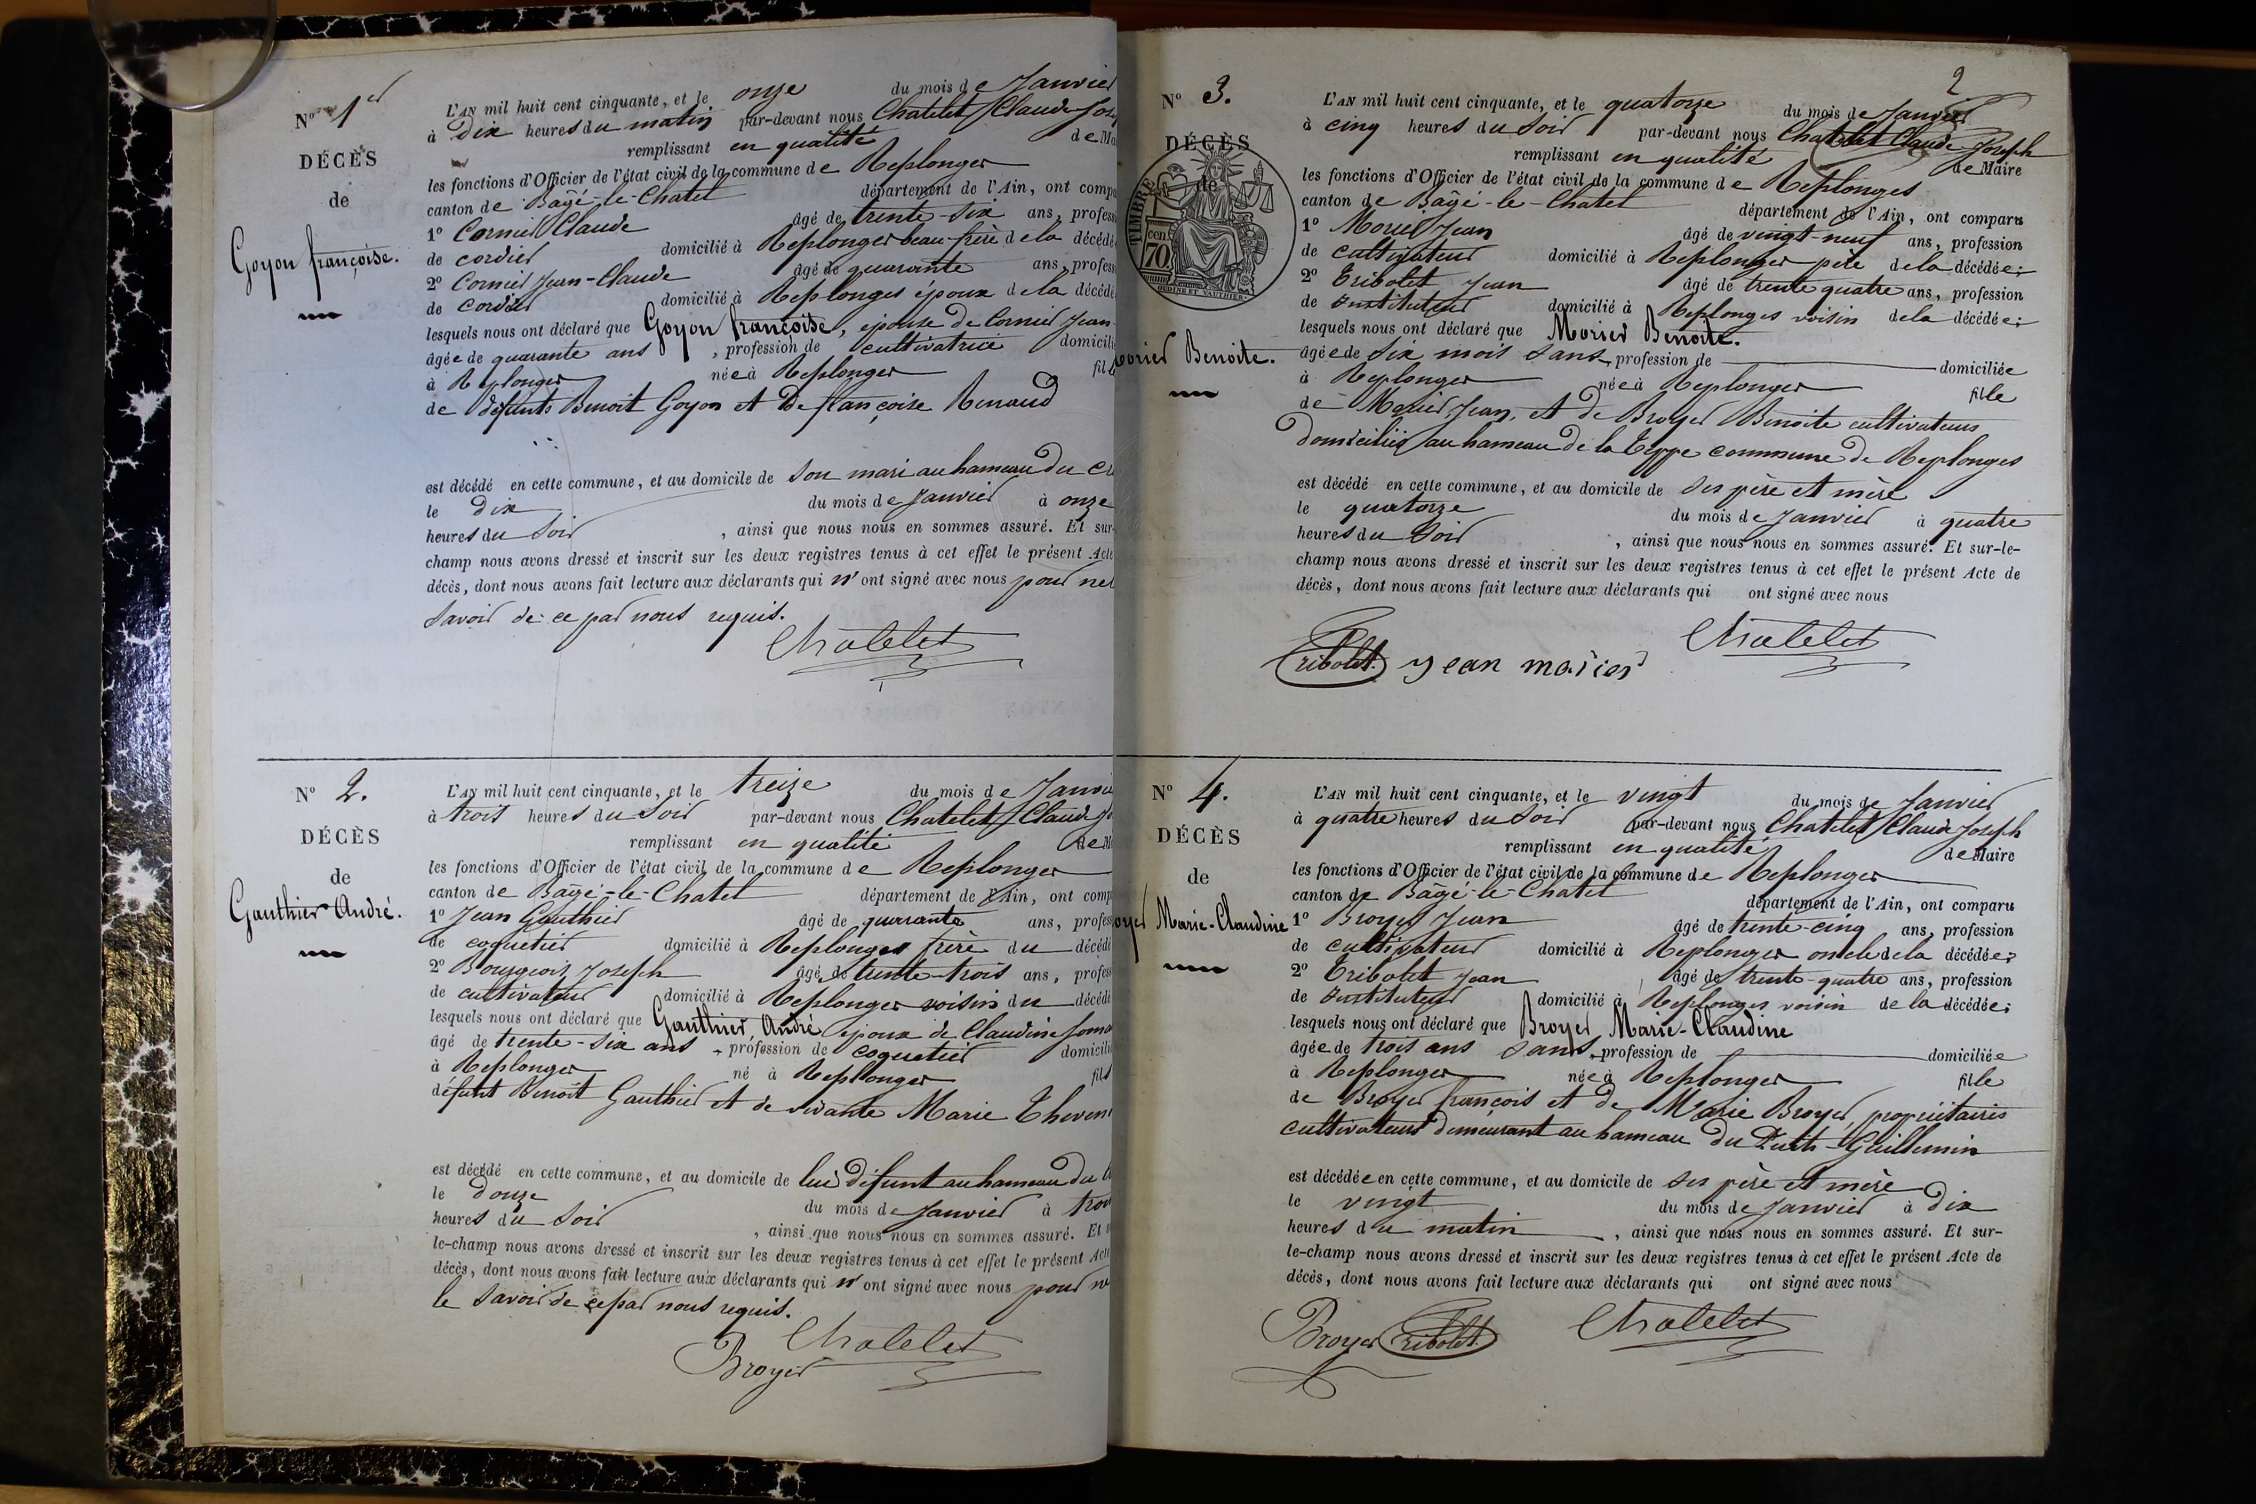 N° 1er
DÉCÈS
de
Goyon françoise.
L'AN mil huit cent cinquante, et le onze du mois de Janvier
à dix heures du matin par-devant nous Chatelet Claude
remplissant en qualité de
les fonctions d'Officier de l'état civil de la commune de Replonges
canton de Bâgé-le-Chatel département de l'Ain, ont
1° Cornier Claude âgé de trente-six ans,
de cordier domicilié à Replonges beau-frère de la
2° Cornier Jean-Claude âgé de quarante ans,
de cordier domicilié à Replonges époux de la
lesquels nous ont déclaré que Goyon françoise, épouse de Cornier Jean-
âgée de quarante ans, profession de cultivatrice
à Replonges née à Replonges
de défunts Benoit Goyon et De françoise Renaud
est décédé en cette commune, et au domicile de son mari au hameau du
le dix du mois de Janvier à onze
heures du soir, ainsi que nous nous en sommes assuré. Et sur-
champ nous avons dressé et inscrit sur les deux registres tenus à cet effet le présent Acte
décès, dont nous avons fait lecture aux déclarants qui n'ont signé avec nous pour
savoir de ce par nous requis.
Chatelet
N° 2.
DÉCÈS
de
Gauthier André.
L'AN mil huit cent cinquante, et le treize du mois de
à trois heures du soir par-devant nous Chatelet Claude
remplissant en qualité de
les fonctions d'Officier de l'état civil de la commune de Replonges
canton de Bâgé-le-Chatel département de l'Ain, ont
1° Jean Gauthier âgé de quarante ans,
de coquetier domicilié à Replonges frère du
2° Bourgeois Joseph âgé de trente-trois ans,
de cultivateur domicilié à Replonges voisin du
lesquels nous ont déclaré que Gauthier André époux de Claudine
âgé de trente-six ans, profession de coquetier
à Replonges né à Replonges fils
défunt Benoit Gauthier et de vivante Marie
est décédé en cette commune, et au domicile de lui défunt au hameau du
le douze du mois de Janvier à
heures du soir, ainsi que nous nous en sommes assuré. Et
le-champ nous avons dressé et inscrit sur les deux registres tenus à cet effet le présent Acte
décès, dont nous avons fait lecture aux déclarants qui n'ont signé avec nous pour
le savoir de ce par nous requis.
Chatelet
Broyer
2
N° 3.
DÉCÈS
de
TIMBRE
70 cen
OUDINÉ ET VAUTHIER
Benoite.
L'AN mil huit cent cinquante, et le quatorze du mois de Janvier
à cinq heures du soir par-devant nous Chatelet Claude Joseph
remplissant en qualité de Maire
les fonctions d'Officier de l'état civil de la commune de Replonges
canton de Bâgé-le-Chatel département de l'Ain, ont comparu
1° Morier Jean âgé de vingt-neuf ans, profession
de cultivateur domicilié à Replonges père de la décédée;
2° Tribolet Jean âgé de trente quatre ans, profession
de Instituteur domicilié à Replonges voisin de la décédée;
lesquels nous ont déclaré que Morier Benoite.
âgée de six mois sans profession de domiciliée
à Replonges née à Replonges fille
de Morier Jean, et de Broyer Benoite cultivateurs
domiciliés au hameau de la Teppe commune de Replonges
est décédé en cette commune, et au domicile de ses père et mère
le quatorze du mois de Janvier à quatre
heures du soir, ainsi que nous nous en sommes assuré. Et sur-le-
champ nous avons dressé et inscrit sur les deux registres tenus à cet effet le présent Acte de
décès, dont nous avons fait lecture aux déclarants qui ont signé avec nous
Tribolet. jean morier Chatelet
N° 4.
DÉCÈS
de
Marie-Claudine
L'AN mil huit cent cinquante, et le vingt du mois de Janvier
à quatre heures du soir par-devant nous Chatelet Claude Joseph
remplissant en qualité de Maire
les fonctions d'Officier de l'état civil de la commune de Replonges
canton de Bâgé-le-Chatel département de l'Ain, ont comparu
1° Broyer Jean âgé de trente-cinq ans, profession
de cultivateur domicilié à Replonges oncle de la décédée;
2° Tribolet Jean âgé de trente-quatre ans, profession
de Instituteur domicilié à Replonges voisin de la décédée;
lesquels nous ont déclaré que Broyer Marie-Claudine
âgée de trois ans sans profession de domiciliée
à Replonges née à Replonges fille
de Broyer françois et de Marie Broyer, propriétaires
cultivateurs demeurant au hameau du Puits-Guillemin
est décédée en cette commune, et au domicile de ses père et mère
le vingt du mois de Janvier à dix
heures du matin, ainsi que nous nous en sommes assuré. Et sur-
le-champ nous avons dressé et inscrit sur les deux registres tenus à cet effet le présent Acte de
décès, dont nous avons fait lecture aux déclarants qui ont signé avec nous
Broyer Tribolet Chatelet